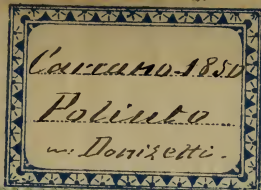 Carrano-1850
Poliuto
m: Donizetti.